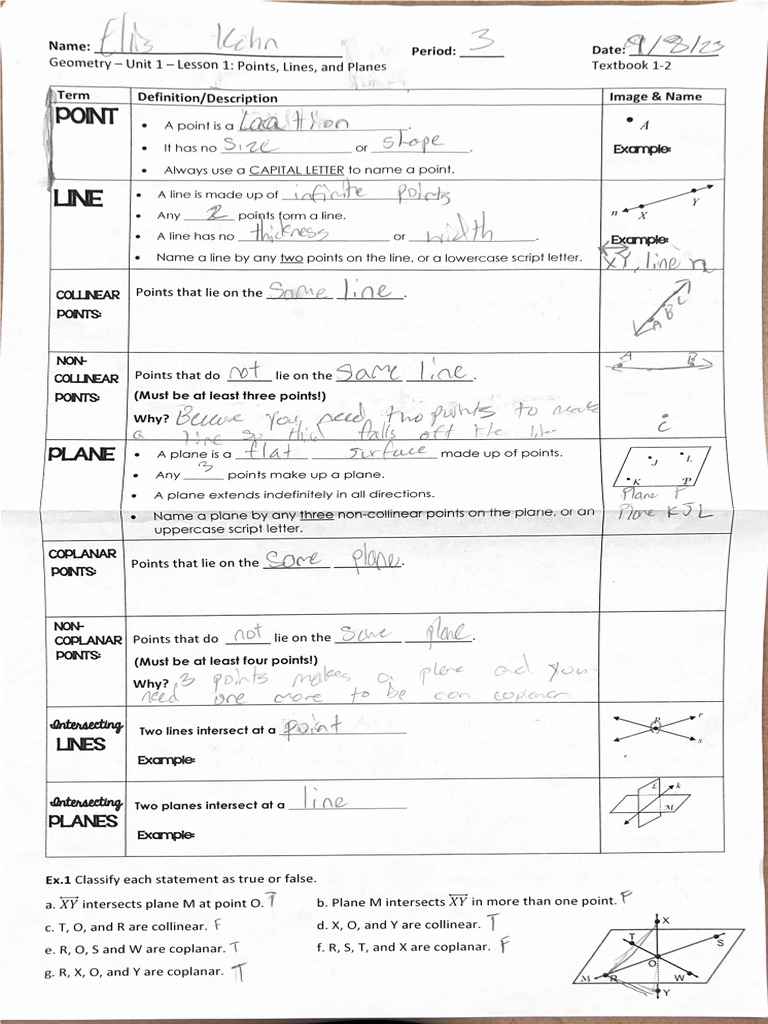 Name: Elis Kihn Period: 3 Date: 9/8/23
Geometry – Unit 1 – Lesson 1: Points, Lines, and Planes Textbook 1-2
Term Definition/Description Image & Name
POINT
• A point is a Location.
• It has no Size or shape.
• Always use a CAPITAL LETTER to name a point.
A
Example:
LINE
• A line is made up of infinite points
• Any 2 points form a line.
• A line has no thickness or width.
• Name a line by any two points on the line, or a lowercase script letter.
n X Y
Example:
XY, line n
COLLINEAR POINTS:
Points that lie on the Same line.
A B C
NON-
COLLINEAR
POINTS:
Points that do not lie on the Same line.
(Must be at least three points!)
Why? Because you need two points to make
a line so third falls off the line
A B
C
PLANE
• A plane is a flat surface made up of points.
• Any 3 points make up a plane.
• A plane extends indefinitely in all directions.
• Name a plane by any three non-collinear points on the plane, or an
uppercase script letter.
J L
K P
Plane P
Plane KJL
COPLANAR
POINTS:
Points that lie on the Same plane.
NON-
COPLANAR
POINTS:
Points that do not lie on the Same plane.
(Must be at least four points!)
Why? 3 points makes a plane and you
need one more to be non coplanar
Intersecting
LINES
Two lines intersect at a point
Example:
P r
s
Intersecting
PLANES
Two planes intersect at a line
Example:
k
M
Ex.1 Classify each statement as true or false.
a. XY intersects plane M at point O. T b. Plane M intersects XY in more than one point. F
c. T, O, and R are collinear. F d. X, O, and Y are collinear. T
e. R, O, S and W are coplanar. T f. R, S, T, and X are coplanar. F
g. R, X, O, and Y are coplanar. T
X
T S
O
M R W
Y